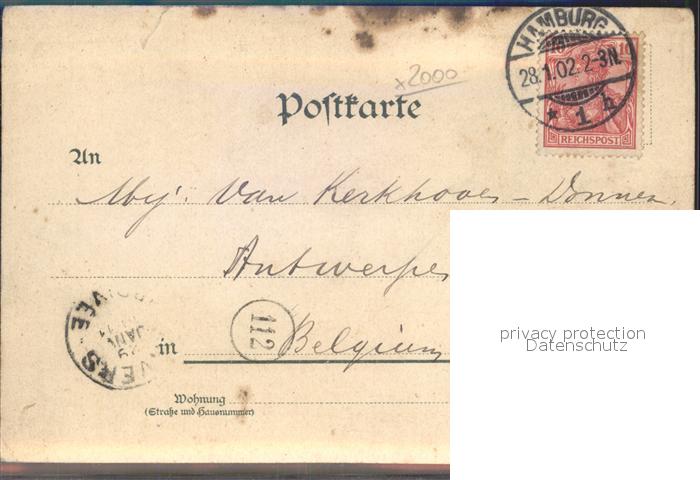 HAMBURG
28.1.02.2-3N.
* 1 h
10
REICHSPOST
x2000
Postkarte
An
Mej. Van Kerkhoven - Donnez
Antwerpe
112
in Belgium
ANVERS
29 JANV
Wohnung
(Straße und Hausnummer)
privacy protection
Datenschutz